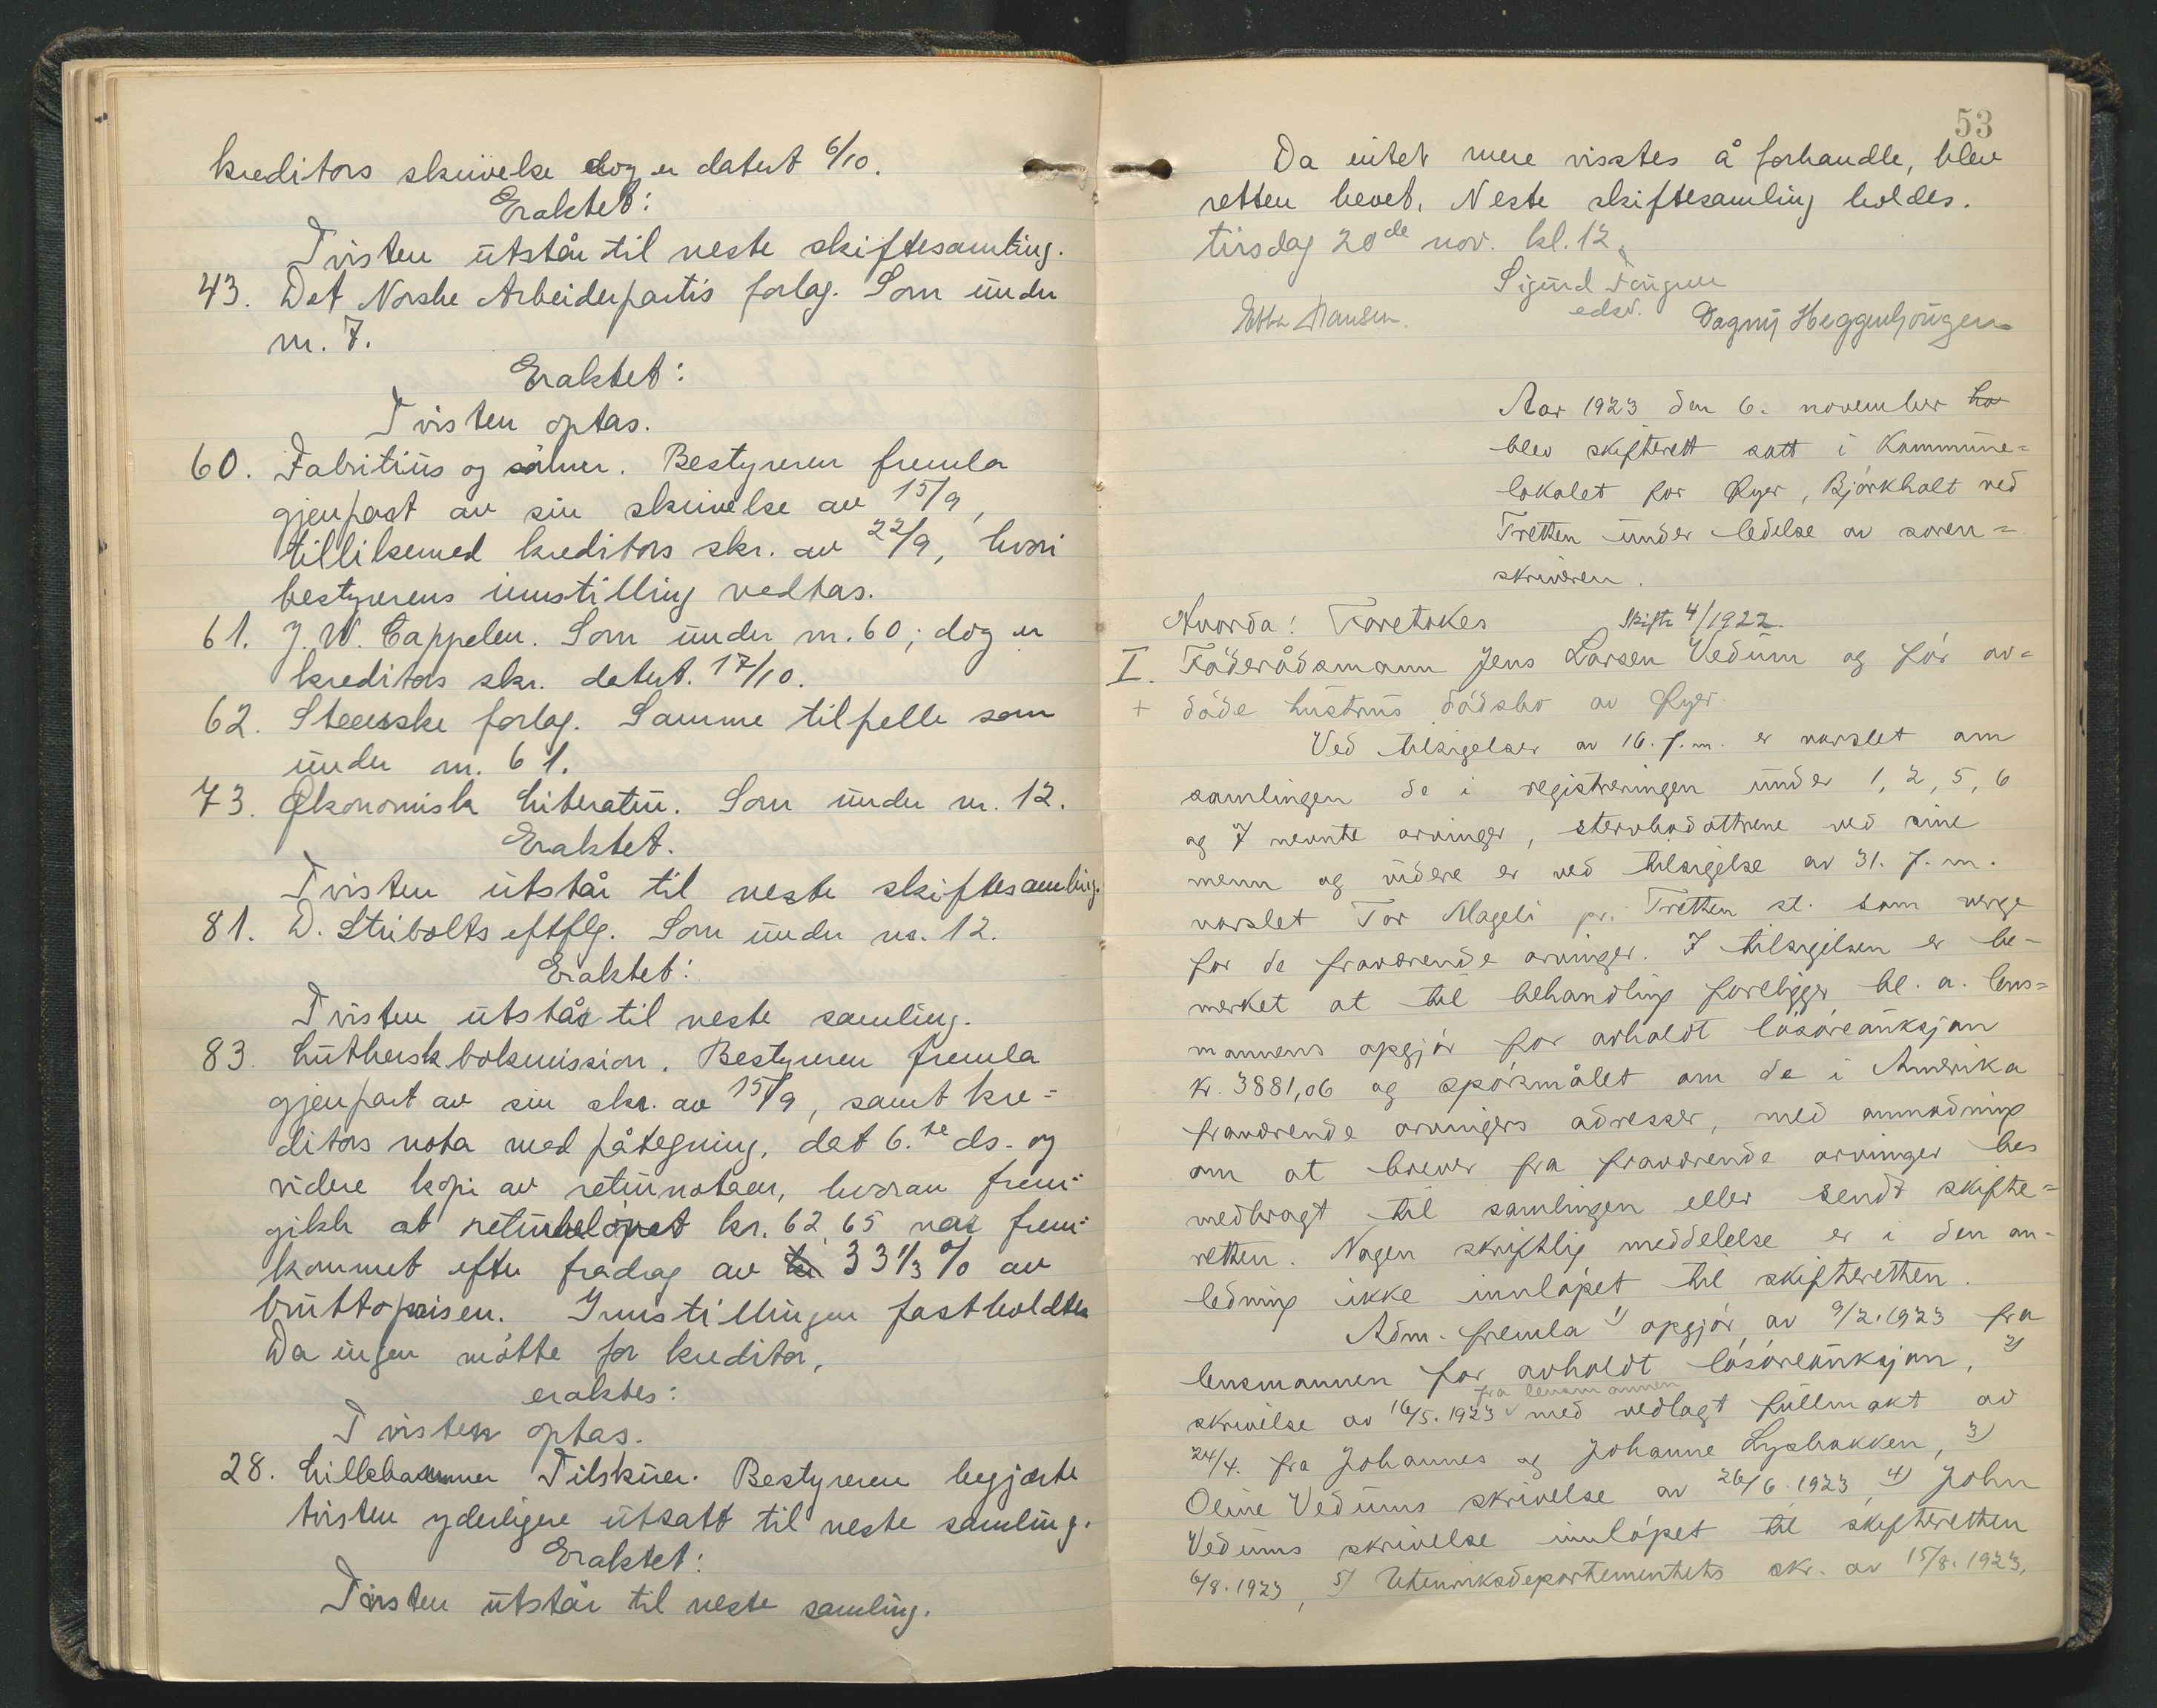 kreditors skrivelse dog er datert 6/10.
Eraktet:
Tvisten utstår til neste skiftesamling.
43. Det Norske Arbeiderpartis forlag. Som under
nr. 7.
Eraktet:
Tvisten optas.
60. Fabritius og sønner. Bestyreren fremla
gjenpart av sin skrivelse av 15/9,
tillikemed kreditors skr. av 22/9, hvori
bestyrerens innstilling vedtas.
61. J. W. Cappelen. Som under nr. 60; dog er
kreditors skr. datert. 17/10.
62. Steenske forlag. Samme tilfelle som
under nr. 61.
73. Økonomisk Literatur. Som under nr. 12.
Eraktet.
Tvisten utstår til neste skiftesamling.
81. D. Stribolts eftflg. Som under nr. 12.
Eraktet:
Tvisten utstår til neste samling.
83. Luthersk bokmission. Bestyreren fremla
gjenpart av sin skr. av 15/9, samt kre=
ditors nota med påtegning, dat 6.te ds. og
videre kopi av returnotaen, hvorav frem=
gikk at returbeløpet kr. 62,65 var frem=
kommet efter fradrag av kr 33 1/3 % av
bruttoprisen. Innstillingen fastholdtes
Da ingen møtte for kreditor,
eraktes:
Tvisten optas.
28. Lillehammer Tilskuer. Bestyreren begjærte
tvisten yderligere utsatt til neste samling.
Eraktet:
Tvisten utstår til neste samling.
53
Da intet mere visstes å forhandle, blev
retten hevet. Neste skiftesamling holdes.
tirsdag 20de nov. kl. 12.
Sigurd
edsv.
Ebba Hansen. Dagny Heggenhougen
Aar 1923 den 6. november ho
blev skifterett satt i Kommune=
lokalet for Øyer, Bjørkholt ved
Tretten under ledelse av soren=
skriveren.
Hvorda: Foretokes Skifte 4/1922.
I. Føderådsmann Jens Larsen Vedum og før av=
+ døde hustrus dødsbo av Øyer.
Ved tilsigelser av 16. f.m. er varslet om
samlingen de i registreringen under 1, 2, 5, 6
og 7 nevnte arvinger, stervbodøttrene ved sine
menn og videre er ved tilsigelse av 31. f.m.
varslet Tor Mageli pr. Tretten st. som verge
for de fraværende arvinger. I tilsigelsen er be-
merket at til behandling foreligger bl. a. lens=
mannens opgjør for avholdt løsøreauksjon
kr. 3881,06 og spørsmålet om de i Amerika
fraværende arvingers adresser, med anmodning
om at brever fra fraværende arvinger bes
medbragt til samlingen eller sendt skifte=
retten. Nogen skriftlig meddelelse er i den an-
ledning ikke innløpet til skifteretten.
Adm. fremla 1) opgjør av 9/2. 1923 fra
lensmannen for avholdt løsøreauksjon, 2)
fra lensmannen
skrivelse av 16/5. 1923 med vedlagt fullmakt av
24/4. fra Johannes og Johanne Lysbakken, 3)
Oline Vedums skrivelse av 26/6. 1923, 4) John
Vedums skrivelse innløpet til skifteretten
6/8. 1923, 5) Utenriksdepartementets skr. av 15/8. 1923,